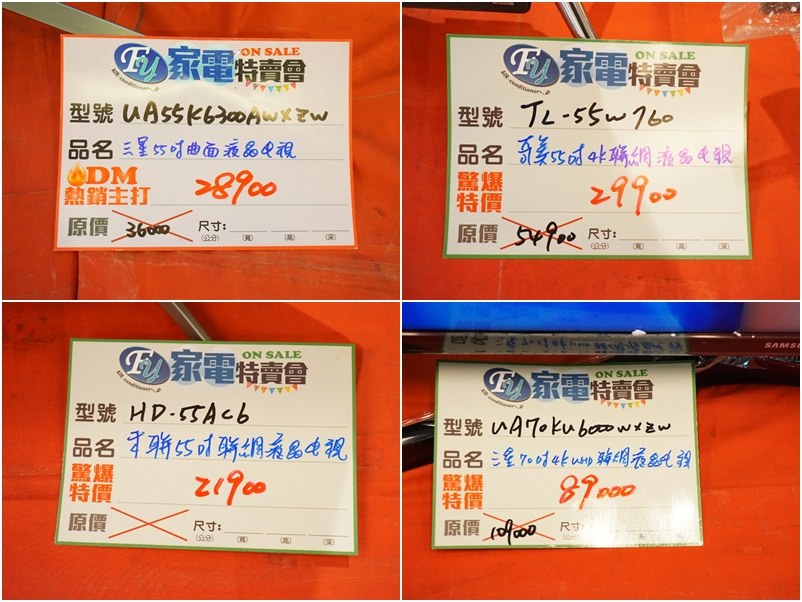 FU 家電特賣會 ON SALE
AIR conditioner
型號 UA55K6300AWXZW
品名 三星55吋曲面液晶电視
DM
熱銷主打 28900
原價 36000 尺寸:
(公分) (寬) (高) (深)
FU 家電特賣會 ON SALE
AIR conditioner
型號 TL-55W760
品名 奇美55吋4K聯網液晶电視
驚爆
特價 29900
原價 54900 尺寸:
(公分) (寬) (高) (深)
FU 家電特賣會 ON SALE
AIR conditioner
型號 HD-55AC6
品名 禾聯55吋聯網液晶电視
驚爆
特價 21900
原價 尺寸:
(公分) (寬) (高) (深)
SAMSUNG
FU 家電特賣會 ON SALE
AIR conditioner
型號 UA70KU6000WXZW
品名 三星70吋4K UHD聯網液晶电視
驚爆
特價 89000
原價 109000 尺寸:
(公分) (寬) (高) (深)